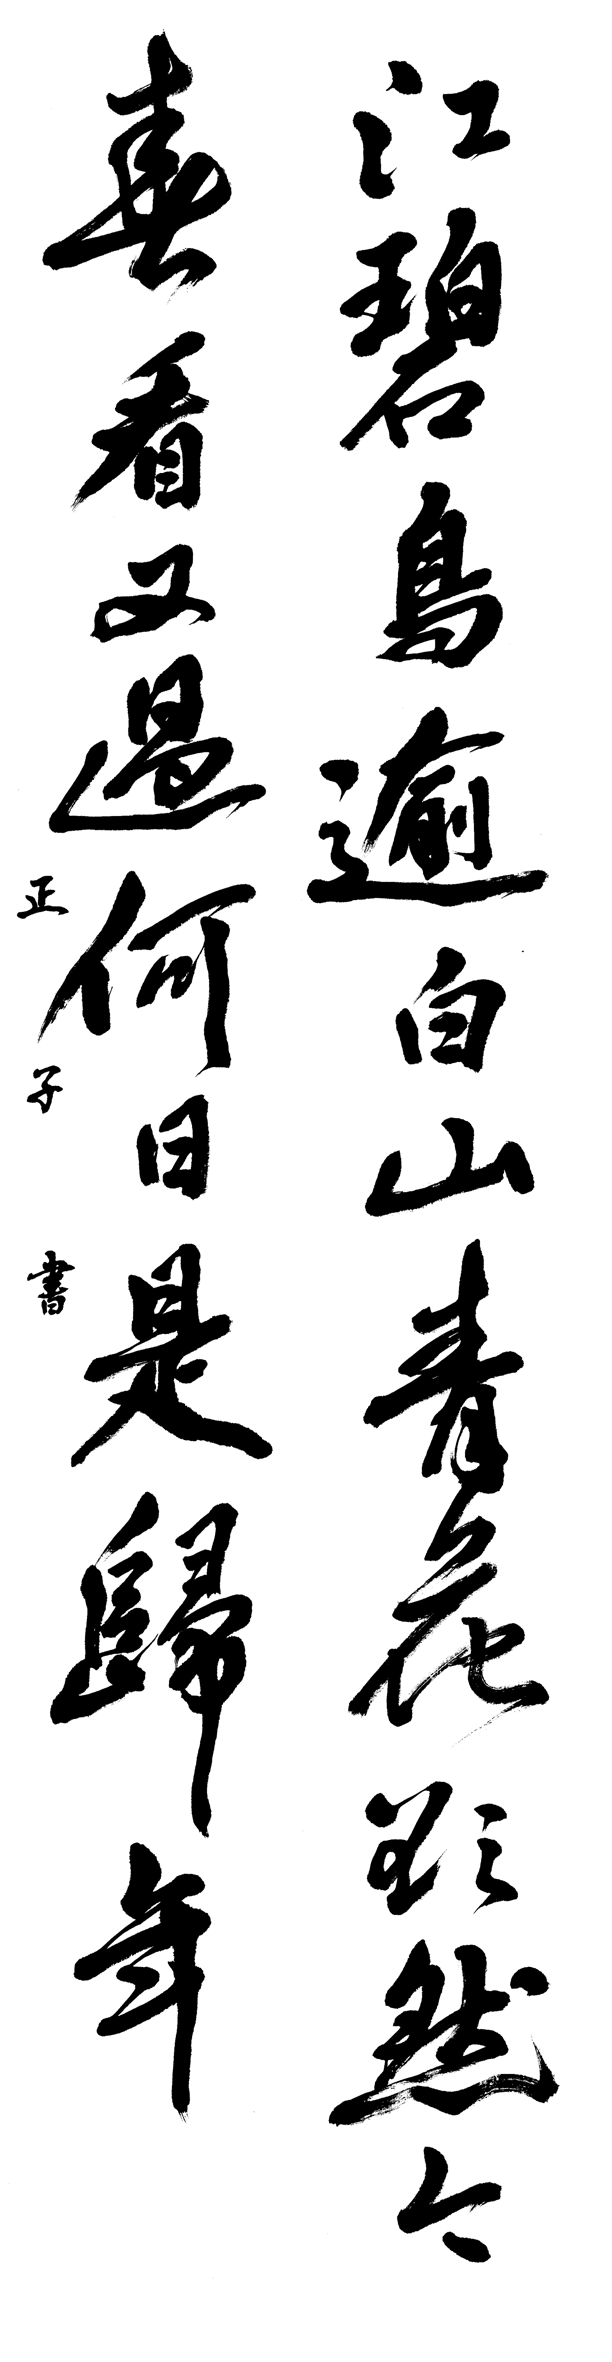 江碧鳥逾白山青花欲然今
春看又過何日是歸年
正子書